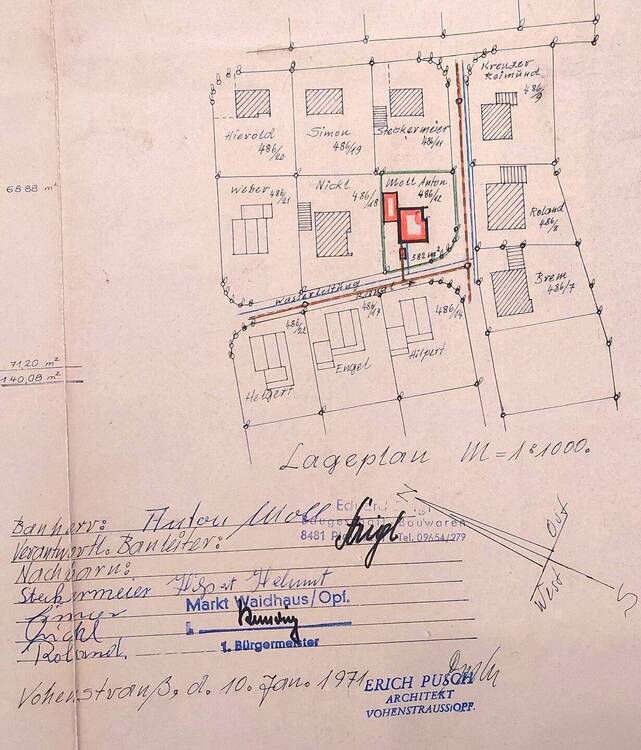 Kreuzer
Reimund
486/9
Hierold
486/20
Simon
486/19
Steckermeier
486/11
68.88 m²
Weber 486/21
Nickl
486/18
Moll Anton
486/12
Roland
486/8
582 m²
Brem
486/7
Wasserleitung
Kanal
486/22
486/13
486/14
Helgert
Engel
Hilpert
71,20 m²
140,08 m²
Lageplan M = 1:1000.
N
Ost
West
S
Bauherr: Anton Moll
Verantwortl. Bauleiter:
Baugeschäft Bauwaren
8481 Tel. 09654/279
Nachbarn:
Steckermeier Helmut
Simon
Nickl
Roland
Markt Waidhaus/Opf.
1. Bürgermeister
Vohenstrauß, d. 10. Jan. 1971
ERICH PUSCH
ARCHITEKT
VOHENSTRAUSS/OPF.